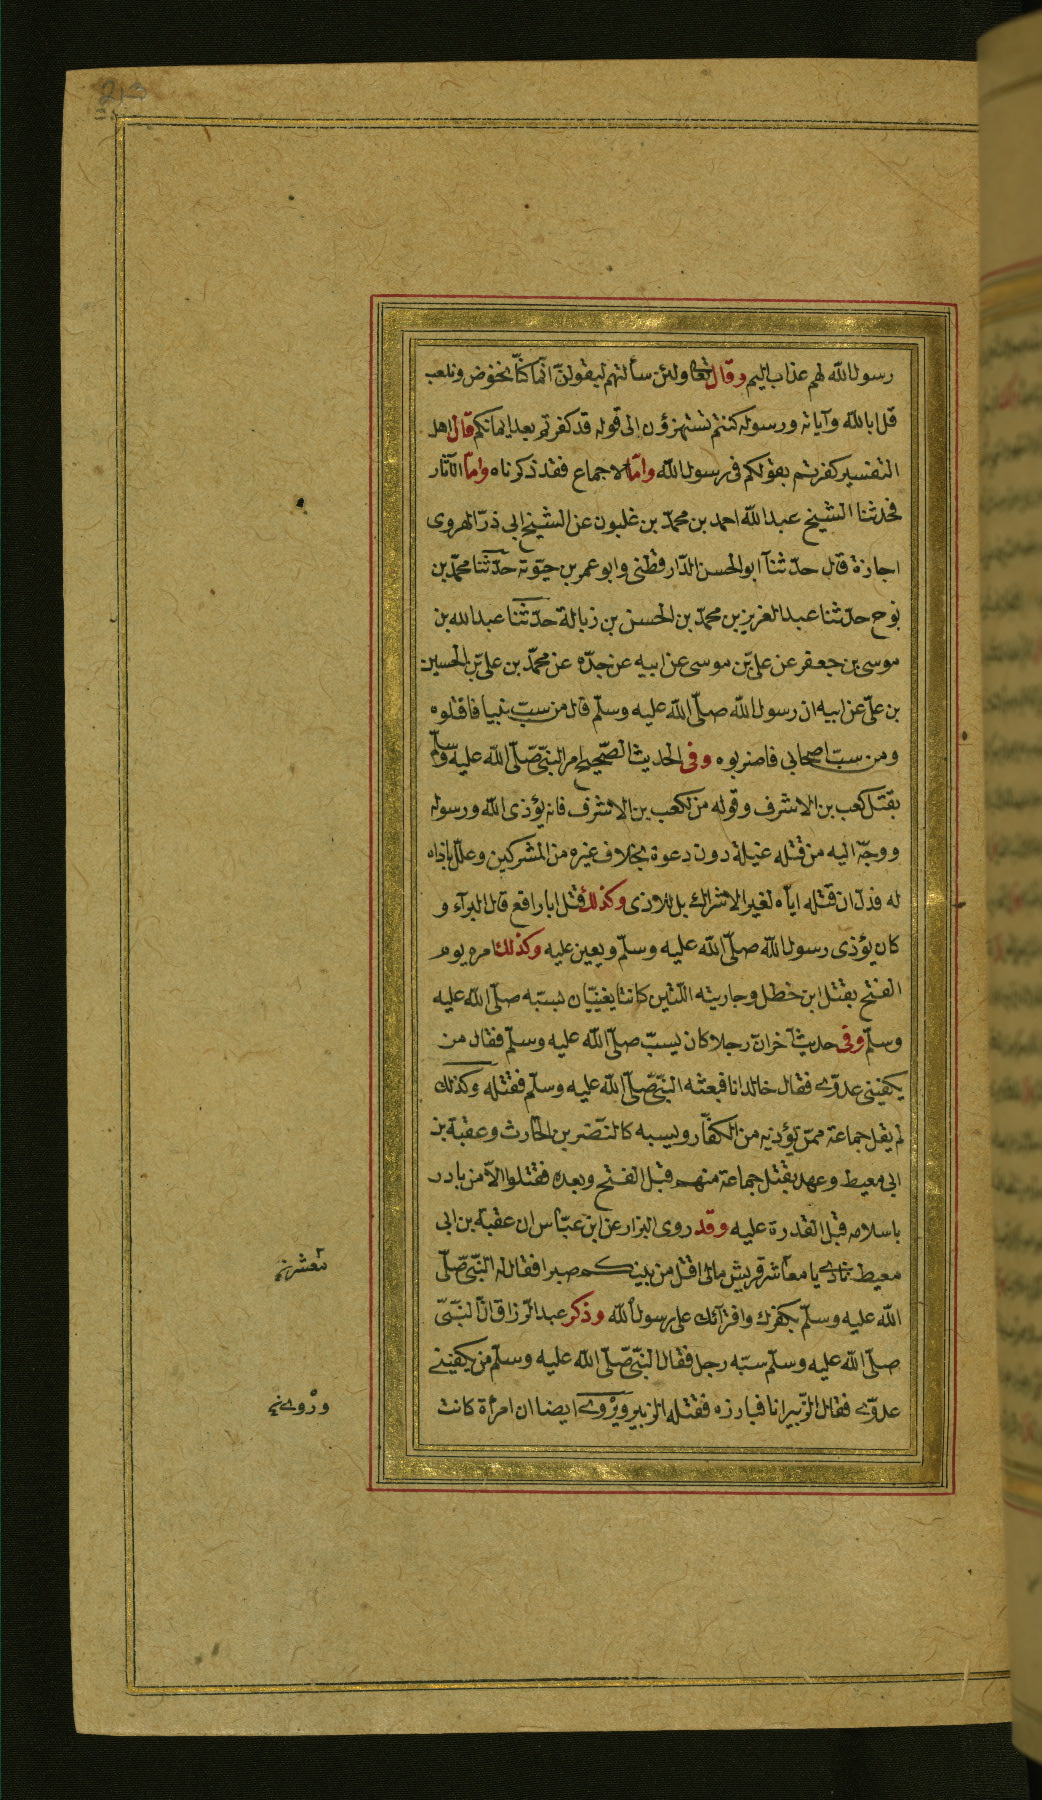 رسول الله لهم عذاب اليم وقال تعا ولئن سألتهم ليقولنّ انّما كنّا نخوض ونلعب
قل ابالله وآياته ورسوله كنتم تستهزؤن الى قوله قد كفرتم بعد ايمانكم قال اهل
التفسير كفرتم بقولكم فى رسول الله وامّا الاجماع فقد ذكرناه وامّا الآثار
فحدثنا الشيخ عبد الله احمد بن محمّد بن غلبون عن الشيخ ابى ذرّ الهروى
اجازة قال حدّثنا ابو الحسن الدّارقطنى وابو عمر بن حيّوته حدّثنا محمّد بن
نوح حدّثنا عبد العزيز بن محمّد بن الحسن بن زبالة حدّثنا عبد الله بن
موسى بن جعفر عن علىّ بن موسى عن ابيه عن جدّه عن محمّد بن علىّ بن الحسين
بن علىّ عن ابيه ان رسول الله صلّى الله عليه وسلّم قال من سبّ نبيا فاقتلوه
ومن سبّ اصحابى فاضربوه وفى الحديث الصّحيح امر النبّى صّلّى الله عليه وسلّم
بقتل كعب بن الاشرف وقوله من لكعب بن الاشرف فانه يؤذى الله ورسوله
ووجّه اليه من قتله غيلة دون دعوة بخلاف غيره من المشركين وعلّل باذاه
له فدلّ ان قتله ايّاه لغير الاشراك بل للاذى وكذلك قتل ابا رافع قال البرآء و
كان يؤذى رسول الله صلّى الله عليه وسلّم ويعين عليه وكذلك امره يوم
الفتح بقتل ابن خطل وجاريته اللّتين كانتا يغنيّان بسبّه صلّى الله عليه
وسلّم وفى حديث آخر انّ رجلا كان يسبّ صلّى الله عليه وسلّم فقال من
يكفينى عدوّى فقال خالد انا فبعثه النبّى صّلّى الله عليه وسلّم فقتله وكذلك
لم يقل جماعة ممّن يؤذيه من الكفّار ويسبه كالنّضر بن الحارث وعقبة بن
ابى معيط وعهد بقتل جماعة منهم قبل الفتح وبعده فقتلوا الاّ من بادر
باسلامه قبل القدرة عليه وقد روى البزار عن ابن عبّاس ان عقبة بن ابى
معيط نادى يا معاشر قريش مالى اقتل من بينكم صبرا فقال له النّبّى صّلّى
الله عليه وسلّم بكفرك وافترآئك على رسول الله وذكر عبد الرّزاق انّ النّبّىّ
صلّى الله عليه وسلّم سبّه رجل فقال النّبّى صّلّى الله عليه وسلّم من يكفينى
عدوّى فقال الزّبير انا فبارزه فقتله الزبير ويروى ايضا ان امرأة كانت
معشر
وروى